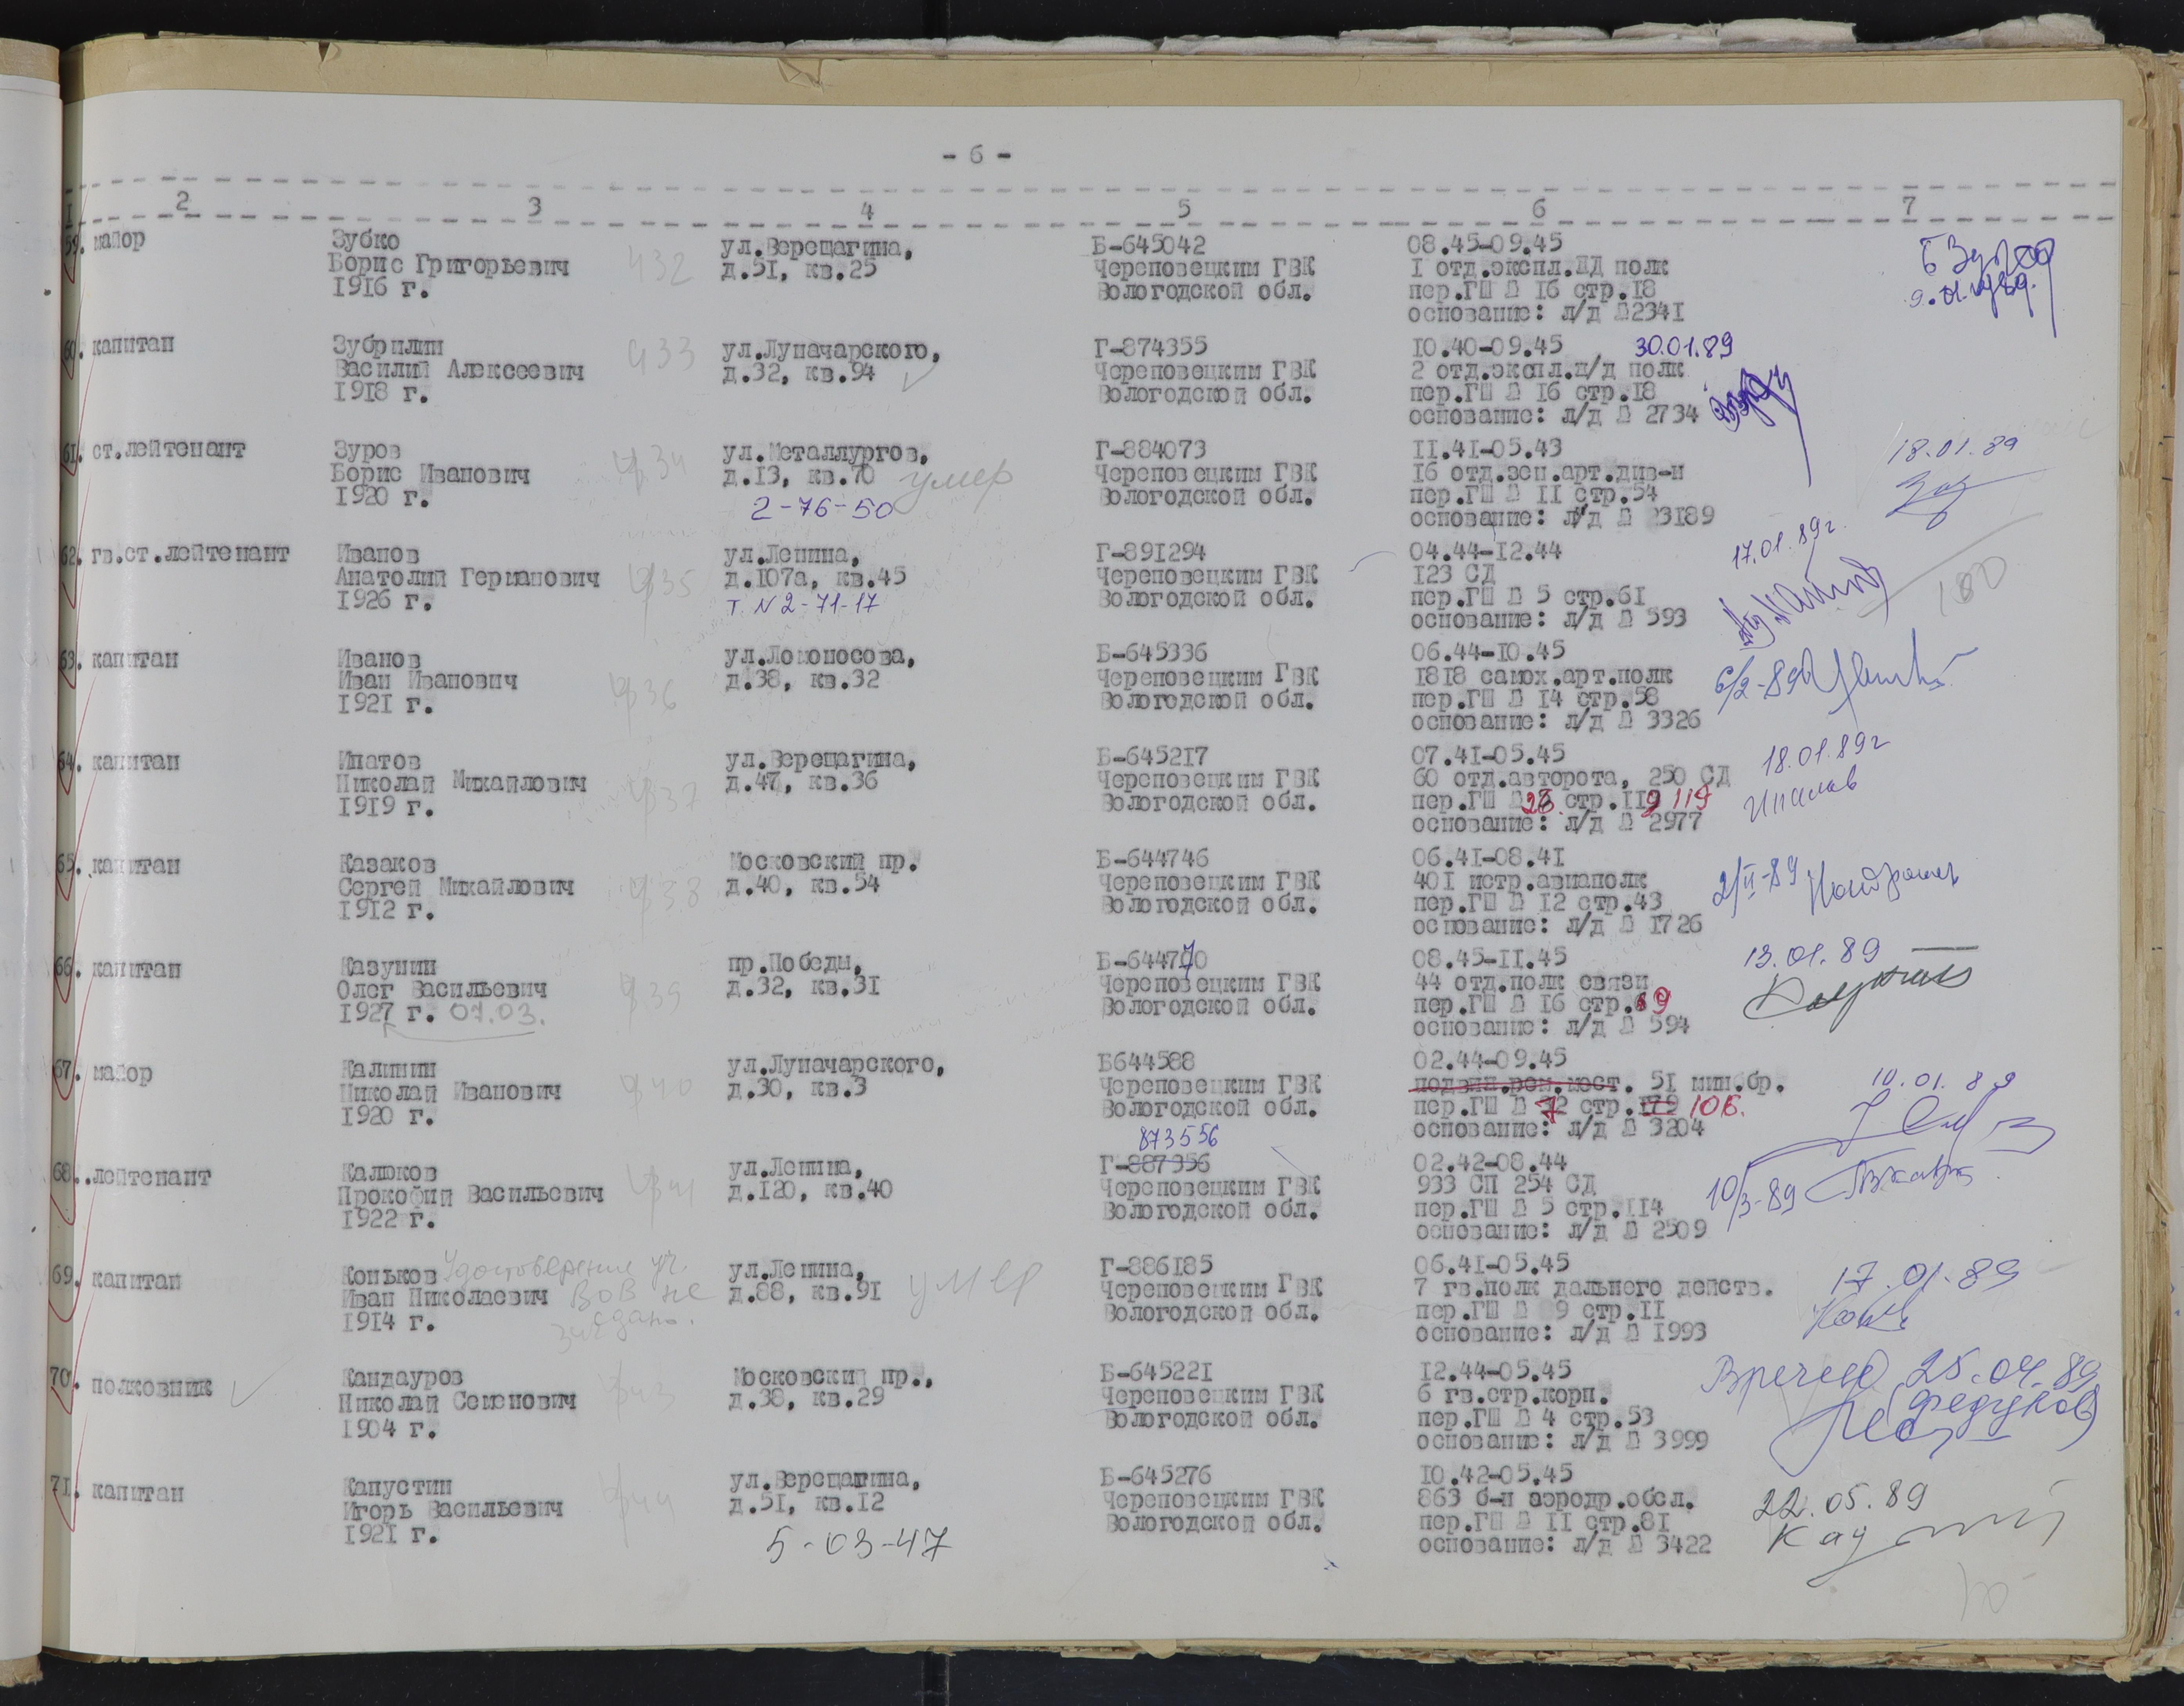 - 6 -
I 2 3 4 5 6 7
59. майор
Зубко
Борис Григорьевич
1916 г.
432
ул.Верещагина,
д.51, кв.25
Б-645042
Череповецким ГВК
Вологодской обл.
08.45-09.45
I отд.экспл.ЖД полк
пер.ГШ № 16 стр.18
основание: л/д №2341
9.01.1989.
60. капитан
Зубрилин
Василий Алексеевич
1918 г.
433
ул.Луначарского,
д.32, кв.94
Г-874355
Череповецким ГВК
Вологодской обл.
10.40-09.45
2 отд.экспл.ж/д полк
пер.ГШ № 16 стр.18
основание: л/д № 2734
30.01.89
61. ст.лейтенант
Зуров
Борис Иванович
1920 г.
434
ул.Металлургов,
д.13, кв.70
умер
2-76-50
Г-884073
Череповецким ГВК
Вологодской обл.
11.41-05.43
16 отд.зен.арт.див-н
пер.ГШ № 11 стр.54
основание: л/д № 23189
18.01.89
62. гв.ст.лейтенант
Иванов
Анатолий Германович
1926 г.
435
ул.Ленина,
д.107а, кв.45
т. N 2-71-17
Г-891294
Череповецким ГВК
Вологодской обл.
04.44-12.44
123 СД
пер.ГШ № 5 стр.61
основание: л/д № 593
17.01.89г.
63. капитан
Иванов
Иван Иванович
1921 г.
436
ул.Ломоносова,
д.38, кв.32
Б-645336
Череповецким ГВК
Вологодской обл.
06.44-10.45
1818 самох.арт.полк
пер.ГШ № 14 стр.58
основание: л/д № 3326
6/2-89
64. капитан
Ипатов
Николай Михайлович
1919 г.
437
ул.Верещагина,
д.47, кв.36
Б-645217
Череповецким ГВК
Вологодской обл.
07.41-05.45
60 отд.авторота, 250 СД
пер.ГШ № 28 стр.119 119
основание: л/д № 2977
18.01.89г
Ипатов
65. капитан
Казаков
Сергей Михайлович
1912 г.
438
Московский пр.
д.40, кв.54
Б-644746
Череповецким ГВК
Вологодской обл.
06.41-08.41
401 истр.авиаполк
пер.ГШ № 12 стр.43
основание: л/д № 1726
2/II-89
66. капитан
Казунин
Олег Васильевич
1927 г. 07.03.
439
пр.Победы,
д.32, кв.31
Б-644770
Череповецким ГВК
Вологодской обл.
08.45-11.45
44 отд.полк связи
пер.ГШ № 16 стр.69
основание: л/д № 594
13.01.89
67. майор
Калинин
Николай Иванович
1920 г.
440
ул.Луначарского,
д.30, кв.3
Б644588
Череповецким ГВК
Вологодской обл.
02.44-09.45
подвиж.рем.маст. 51 мин.бр.
пер.ГШ № 72 стр.179 106.
основание: л/д № 3204
10.01.89
68. лейтенант
Калюков
Прокофий Васильевич
1922 г.
441
ул.Ленина,
д.120, кв.40
873556
Г-887356
Череповецким ГВК
Вологодской обл.
02.42-08.44
933 СП 254 СД
пер.ГШ № 5 стр.114
основание: л/д № 2509
10/3-89
69. капитан
Коньков
Иван Николаевич
1914 г.
Удостоверение уч.
ВОВ не
здано.
ул.Ленина,
д.88, кв.91
умер
Г-886185
Череповецким ГВК
Вологодской обл.
06.41-05.45
7 гв.полк дальнего действ.
пер.ГШ № 9 стр.11
основание: л/д № 1993
17.01.89
70. полковник
Кандауров
Николай Семенович
1904 г.
443
Московский пр.,
д.38, кв.29
Б-645221
Череповецким ГВК
Вологодской обл.
12.44-05.45
6 гв.стр.корп.
пер.ГШ № 4 стр.53
основание: л/д № 3999
Вручено 25.04.89
Федуков
71. капитан
Капустин
Игорь Васильевич
1921 г.
444
ул.Верещагина,
д.51, кв.12
5-03-47
Б-645276
Череповецким ГВК
Вологодской обл.
10.42-05.45
863 б-н аэродр.обсл.
пер.ГШ № 11 стр.81
основание: л/д № 3422
22.05.89